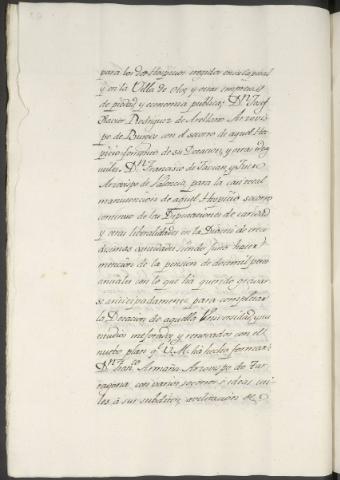 para los dos Hospicios erigidos en esta Capital
y en la Villa de Olot y otras empresas
de piedad y economia publica; Dn. Josef
Xavier Rodriguez de Arellano Arzovis-
po de Burgos con el socorro de aquel Hos-
picio fomento de su Dotacion, y otras
Dn. Francisco de Fabian y Fuero
Arzovispo de Valencia, para la casi total
manutencion de aquel Hospicio socorro
continuo de las Diputaciones de caridad
y otras liberalidades en la Diocesi de creci-
disimas cantidades siendo justo hacer
mencion de la pension de docemil pesos
anuales con lo que ha querido gravar-
se anticipadamente para completar
la Dotacion de aquella Universidad y es-
tudios mejorados y renovados con el
nuevo plan q. V. M. ha hecho formar:
Dn. Fr. Fran.co Armaña Arzovispo de Tar-
ragona con varios socorros e ideas uti-
les á sus subditos,